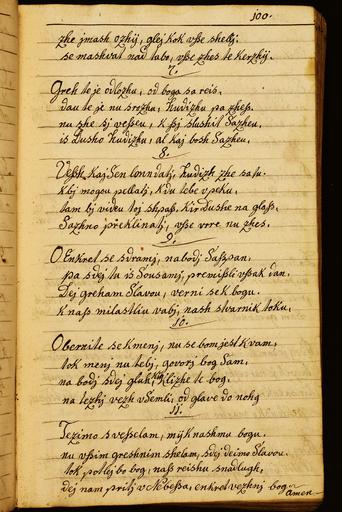 100.
zhe jmash ozhij, glej kok vsse shellj.
se maskvat nad tabo, vsse zhes te kerzhij.
7.
Greh te je odlozhu, od boga sa reis,
dau te je nu srozhu, hudizhu pa zhess.
nu she sj vesseu, k sj slushit Sazheu,
is dusho hudizhu, al kaj bosh Sazheu.
8.
Vesst, kaj sen lonndatj, hudizh zhe sa su.
k bj mogou pellatj, k du tebe vpeku.
tam bj vidu toj shpass, kir dushe na glass,
Sazhno preklinatj, vsse vore nu zhes.
9.
O Enkret se sdramj, na bodj Saspan,
pa sdej ta is Sousamj, premissli vssak dan,
Dej greham Slavou, verni se k bogu.
k nass milastliu vabj, nash stvarnik toku,
10.
Obernite se k menj, nu se bom jest k vam,
tok menj nu tebj, govorj bog Sam,
na bodj sdej gluh, k klizhe te bog.
na lezhj vezh v Semli, od glave do nohg
11.
Tezimo s vesselam, mij k nashmu bogu.
nu vssim greshnim shelam, sdej deimo Slavou.
tok potlej bo bog, nass reishu snadlugh,
dej nam pritj v Nebessa, enkret vezhnj bog
Amen